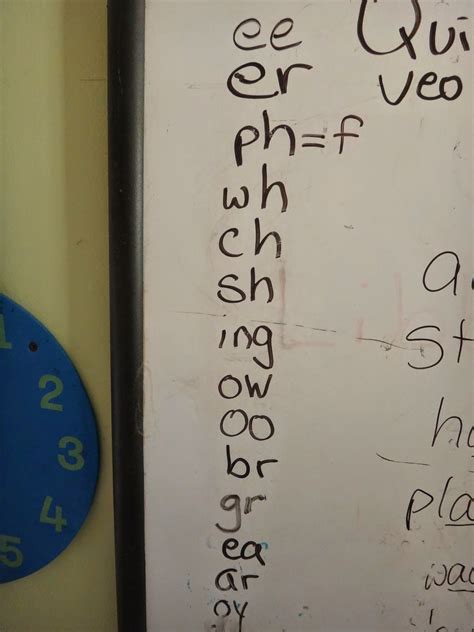 ee Qui
er veo
ph=f
wh
ch
sh a
ing st
ow
oo h
br
gr pla
ea
ar wa
oy
1
2
3
4
5